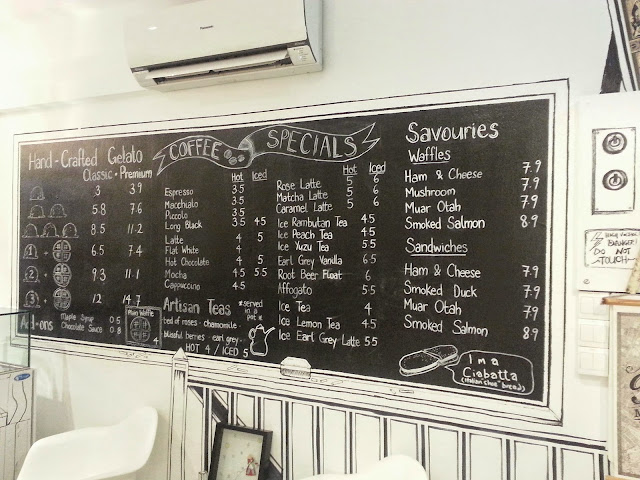 Panasonic
Hand-Crafted Gelato
Classic • Premium
3 3.9
5.8 7.6
8.5 11.2
1 + 6.5 7.4
2 + 9.3 11.1
3 + 12 14.7
Add-ons
Maple Syrup 0.5
Chocolate Sauce 0.8
Plain Waffle
4
COFFEE SPECIALS
Hot Iced
Espresso 3.5
Macchiato 3.5
Piccolo 3.5
Long Black 3.5 4.5
Latte 4 5
Flat White 4
Hot Chocolate 4 5
Mocha 4.5 5.5
Cappuccino 4.5
Artisan Teas
*served in a pot*
bed of roses - chamomile
blissful berries - earl grey
HOT 4 / ICED 5
Hot Iced
Rose Latte 5 6
Matcha Latte 5 6
Caramel Latte 5 6
Ice Rambutan Tea 4.5
Ice Peach Tea 4.5
Ice Yuzu Tea 5.5
Earl Grey Vanilla 6.5
Root Beer Float 6
Affogato 5.5
Ice Tea 4
Ice Lemon Tea 4.5
Ice Earl Grey Latte 5.5
Savouries
Waffles
Ham & Cheese 7.9
Mushroom 7.9
Muar Otah 7.9
Smoked Salmon 8.9
Sandwiches
Ham & Cheese 7.9
Smoked Duck 7.9
Muar Otah 7.9
Smoked Salmon 8.9
I'm a
Ciabatta
(italian shoe" bread)
DANGER!
DO NOT
TOUCH